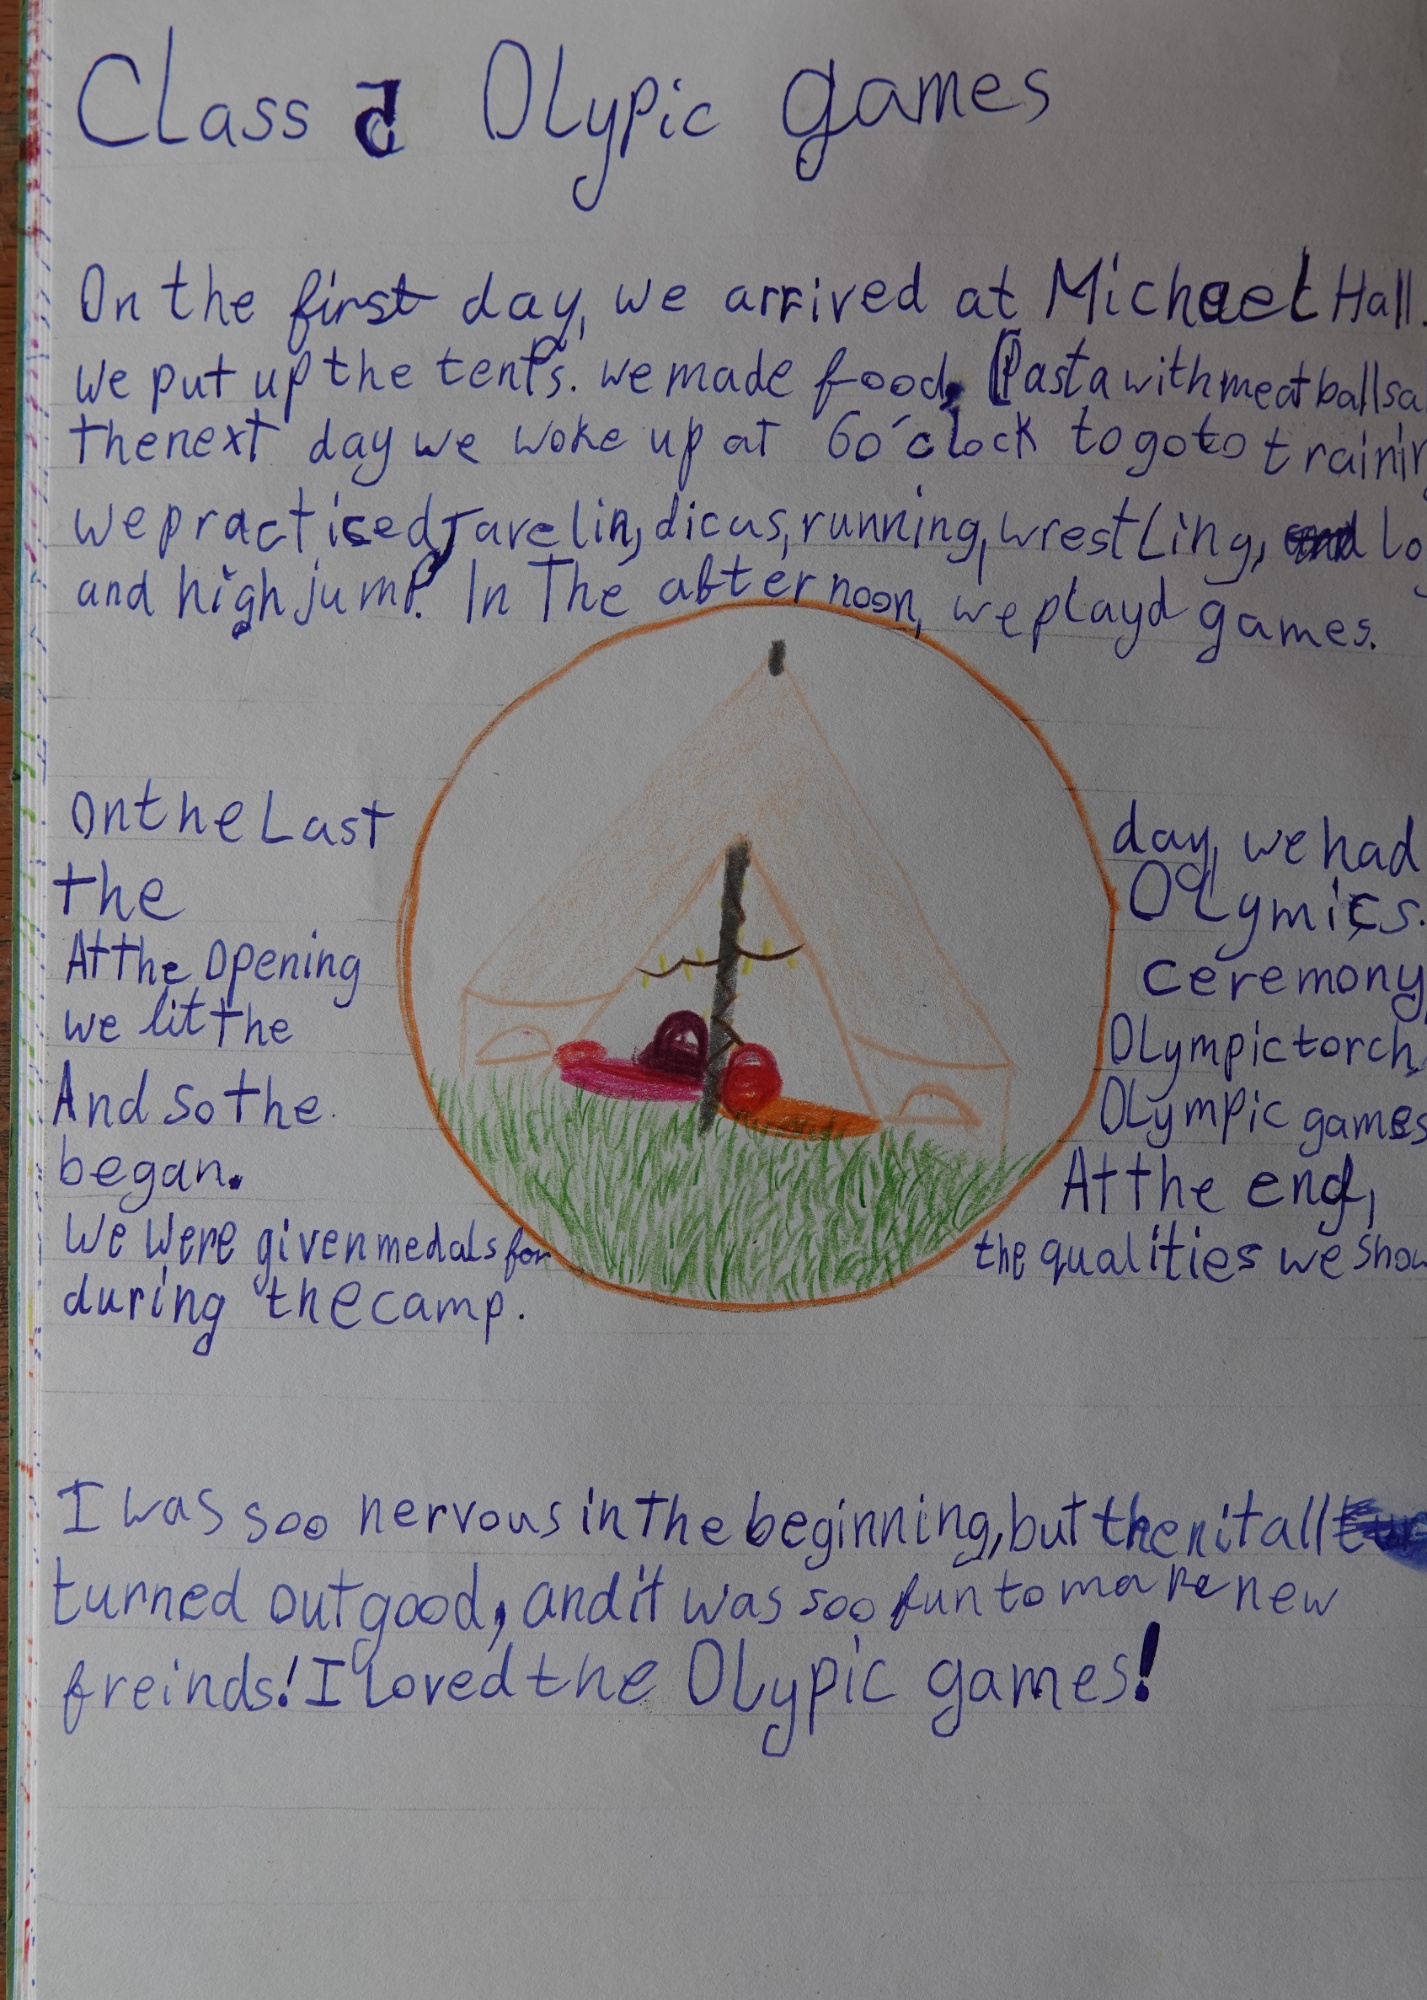 Class 5 Olypic games
On the first day, we arrived at Michael Hall.
we put up the tents. we made food. Pasta with meatballs
the next day we woke up at 6 o'clock to go to
we practiced Javelin, dicus, running, wrestling,
and high jump. In The afternoon, we playd games.
On the Last day, we had
the Olymics.
At the opening ceremony,
we lit the Olympic torch,
And so the Olympic games
began. At the end,
We were given medals for the qualities we
during the camp.
I was soo nervous in the beginning, but then it all
turned out good, and it was soo fun to make new
freinds! I loved the Olypic games!